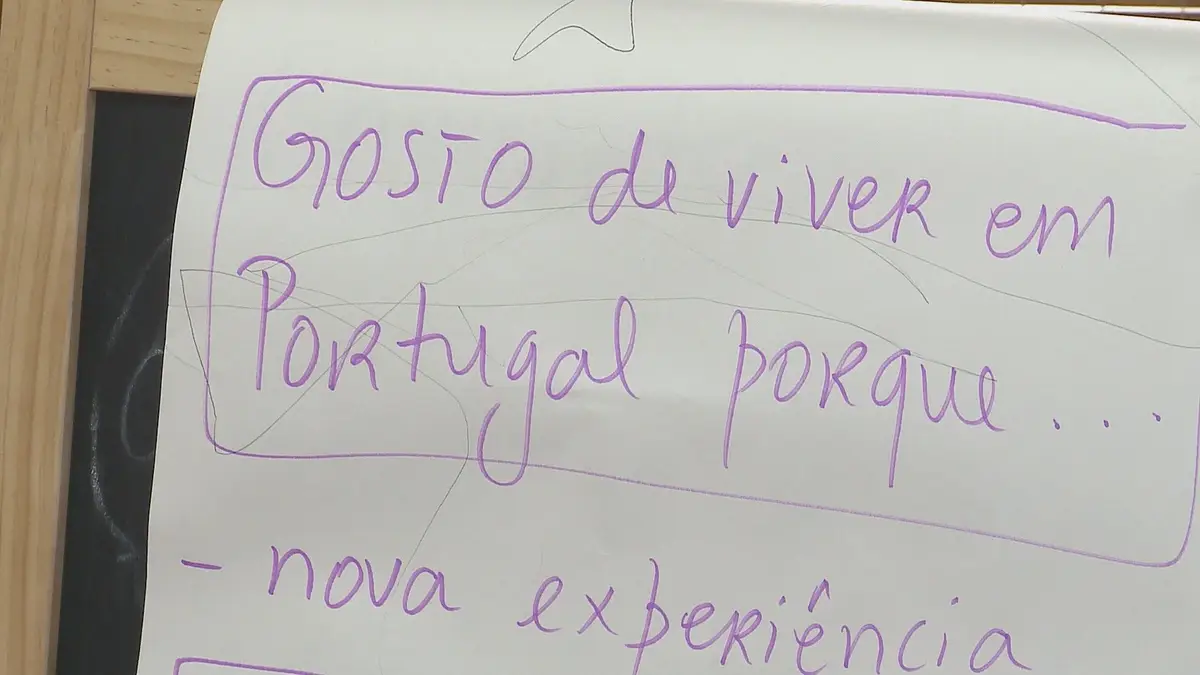 Gosto de viver em
Portugal porque ...
- nova experiência